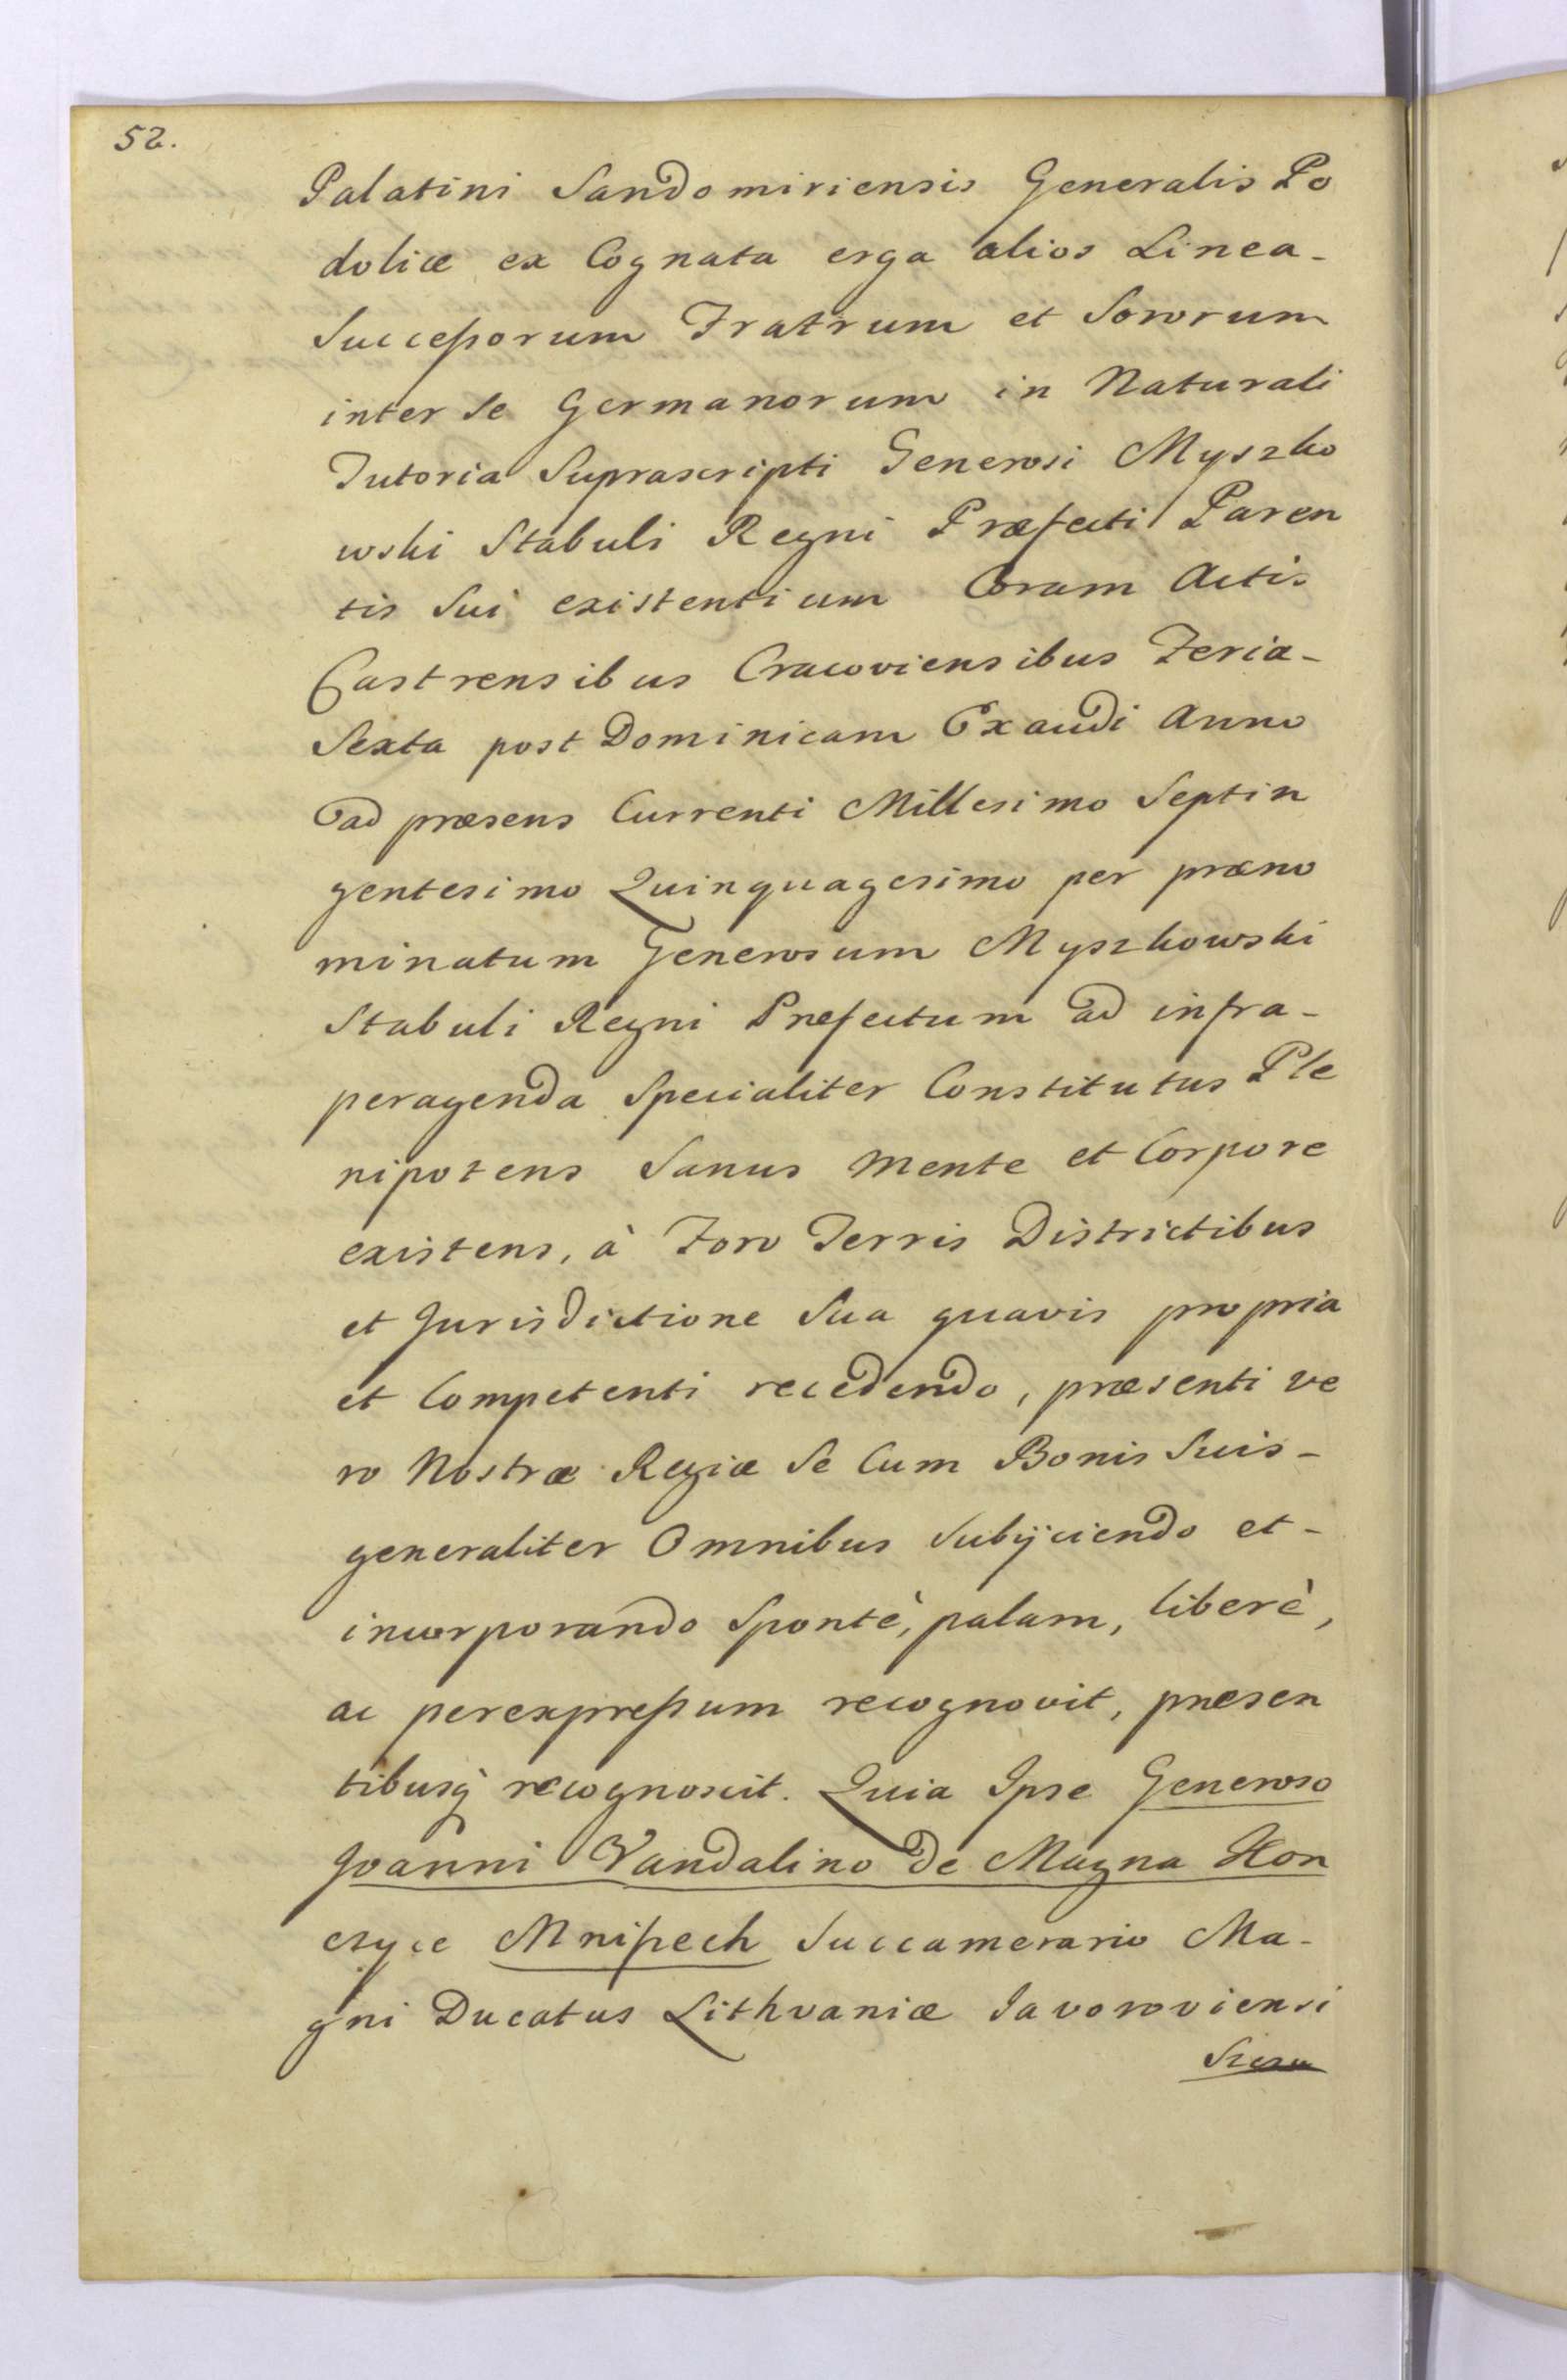 52.
Palatini Sandomiriensis Generalis Po
doliæ ex Cognata erga alios Linea-
Successorum Fratrum et Sororum
inter se Germanorum in Naturali
Tutoria Suprascripti Generosi Myszko
wski Stabuli Regni Præfecti Paren
tis Sui existentium Coram Actis
Castrensibus Cracoviensibus Feria-
Sexta post Dominicam Exaudi Anno
ad præsens Currenti Millesimo Septin
gentesimo Quinquagesimo per præno
minatum Generosum Myszkowski
Stabuli Regni Præfectum ad infra-
peragenda Specialiter Constitutus Ple
nipotens Sanus Mente et Corpore
existens, à Foro Terris Districtibus
et Jurisdictione Sua quavis propria
et Competenti recedendo, præsenti ve
ro Nostræ Regiæ Se Cum Bonis Suis-
generaliter Omnibus Subijciendo et-
incorporando Spontè, palam, liberè,
ac perexpressum recognovit, præsen
tibusq̀ recognoscit. Quia Ipse Generoso
Joanni Vandalino de Magna Kon
czyce Mnissech Succamerario Ma-
gni Ducatus Lithvaniæ Javoroviensi